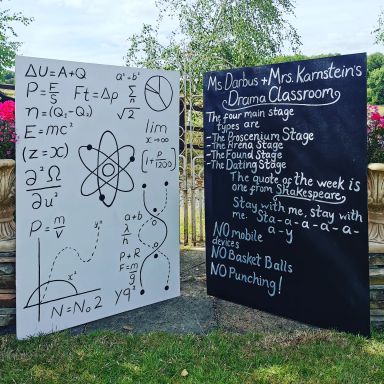 ΔU = A + Q
a² + b²
P = E/S
Ft = Δp
Σ n 5
√2
η = (Q₁ - Q₂)
E = mc²
lim
x → ∞
(z = x)
[1 + P/1200]
∂²Ω
∂u²
P = m/V
a + b
λ/n
P + R
F = m/g
yq²
x²
y²
N = N₀ 2
Ms Darbus + Mrs. Karnstein's
Drama Classroom
The four main stage
types are
- The Proscenium Stage
- The Arena Stage
- The Found Stage
- The Dating Stage
The quote of the week is
one from Shakespeare
Stay with me, stay with
me. Sta-a-a-a-a-
a-y
NO mobile
devices
NO Basket Balls
NO Punching!